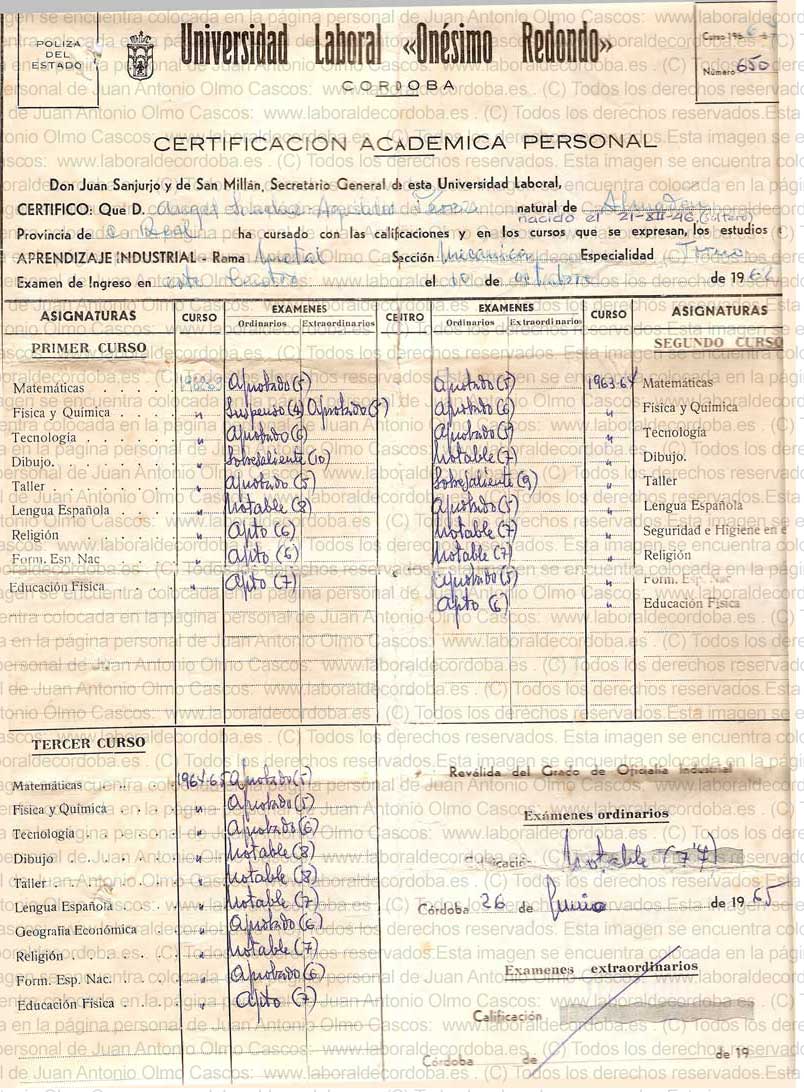 POLIZA
DEL
ESTADO
Universidad Laboral «Onésimo Redondo»
CORDOBA
Curso 196
Número 650
CERTIFICACION ACADEMICA PERSONAL
Don Juan Sanjurjo y de San Millán, Secretario General de esta Universidad Laboral,
CERTIFICO: Que D. Angel natural de Almadén
nacido el 21-XII-46 (soltero)
Provincia de C. Real ha cursado con las calificaciones y en los cursos que se expresan, los estudios
APRENDIZAJE INDUSTRIAL - Rama Metal Sección Mecánica Especialidad Torno
Examen de Ingreso en este Centro el 10 de octubre de 1962
ASIGNATURAS CURSO EXAMENES CENTRO EXAMENES CURSO ASIGNATURAS
Ordinarios Extraordinarios Ordinarios Extraordinarios
PRIMER CURSO SEGUNDO CURSO
Matemáticas 1962-63 Aprobado (5) Aprobado (5) 1963-64 Matemáticas
Fisica y Quimica " Suspenso (4) Aprobado (5) Aprobado (6) " Fisica y Quimica
Tecnología " Aprobado (6) Aprobado (5) " Tecnología
Dibujo. " Sobresaliente (10) Notable (7) " Dibujo.
Taller " Aprobado (5) Sobresaliente (9) " Taller
Lengua Española " Notable (8) Aprobado (5) " Lengua Española
Religión " Apto (6) Notable (7) " Seguridad e Higiene en e
Form. Esp. Nac " Apto (6) Notable (7) " Religión
Educación Fisica " Apto (7) Aprobado (5) " Form. Esp. Nac
Apto (6) " Educación Fisica
TERCER CURSO
Matemáticas 1964-65 Aprobado (5)
Fisica y Química " Aprobado (5)
Tecnología " Aprobado (6)
Dibujo " Notable (8)
Taller " Notable (8)
Lengua Española " Notable (7)
Geografia Económica " Aprobado (6)
Religión " Notable (7)
Form. Esp. Nac. " Aprobado (6)
Educación Fisica " Apto (7)
Reválida del Grado de Oficialía Industrial
Exámenes ordinarios
Calificación Notable (7'7)
Córdoba 26 de Junio de 1965
Examenes extraordinarios
Calificación
Córdoba de de 19
Esta imagen se encuentra colocada en la página personal de Juan Antonio Olmo Cascos: www.laboraldecordoba.es . (C) Todos los derechos reservados.